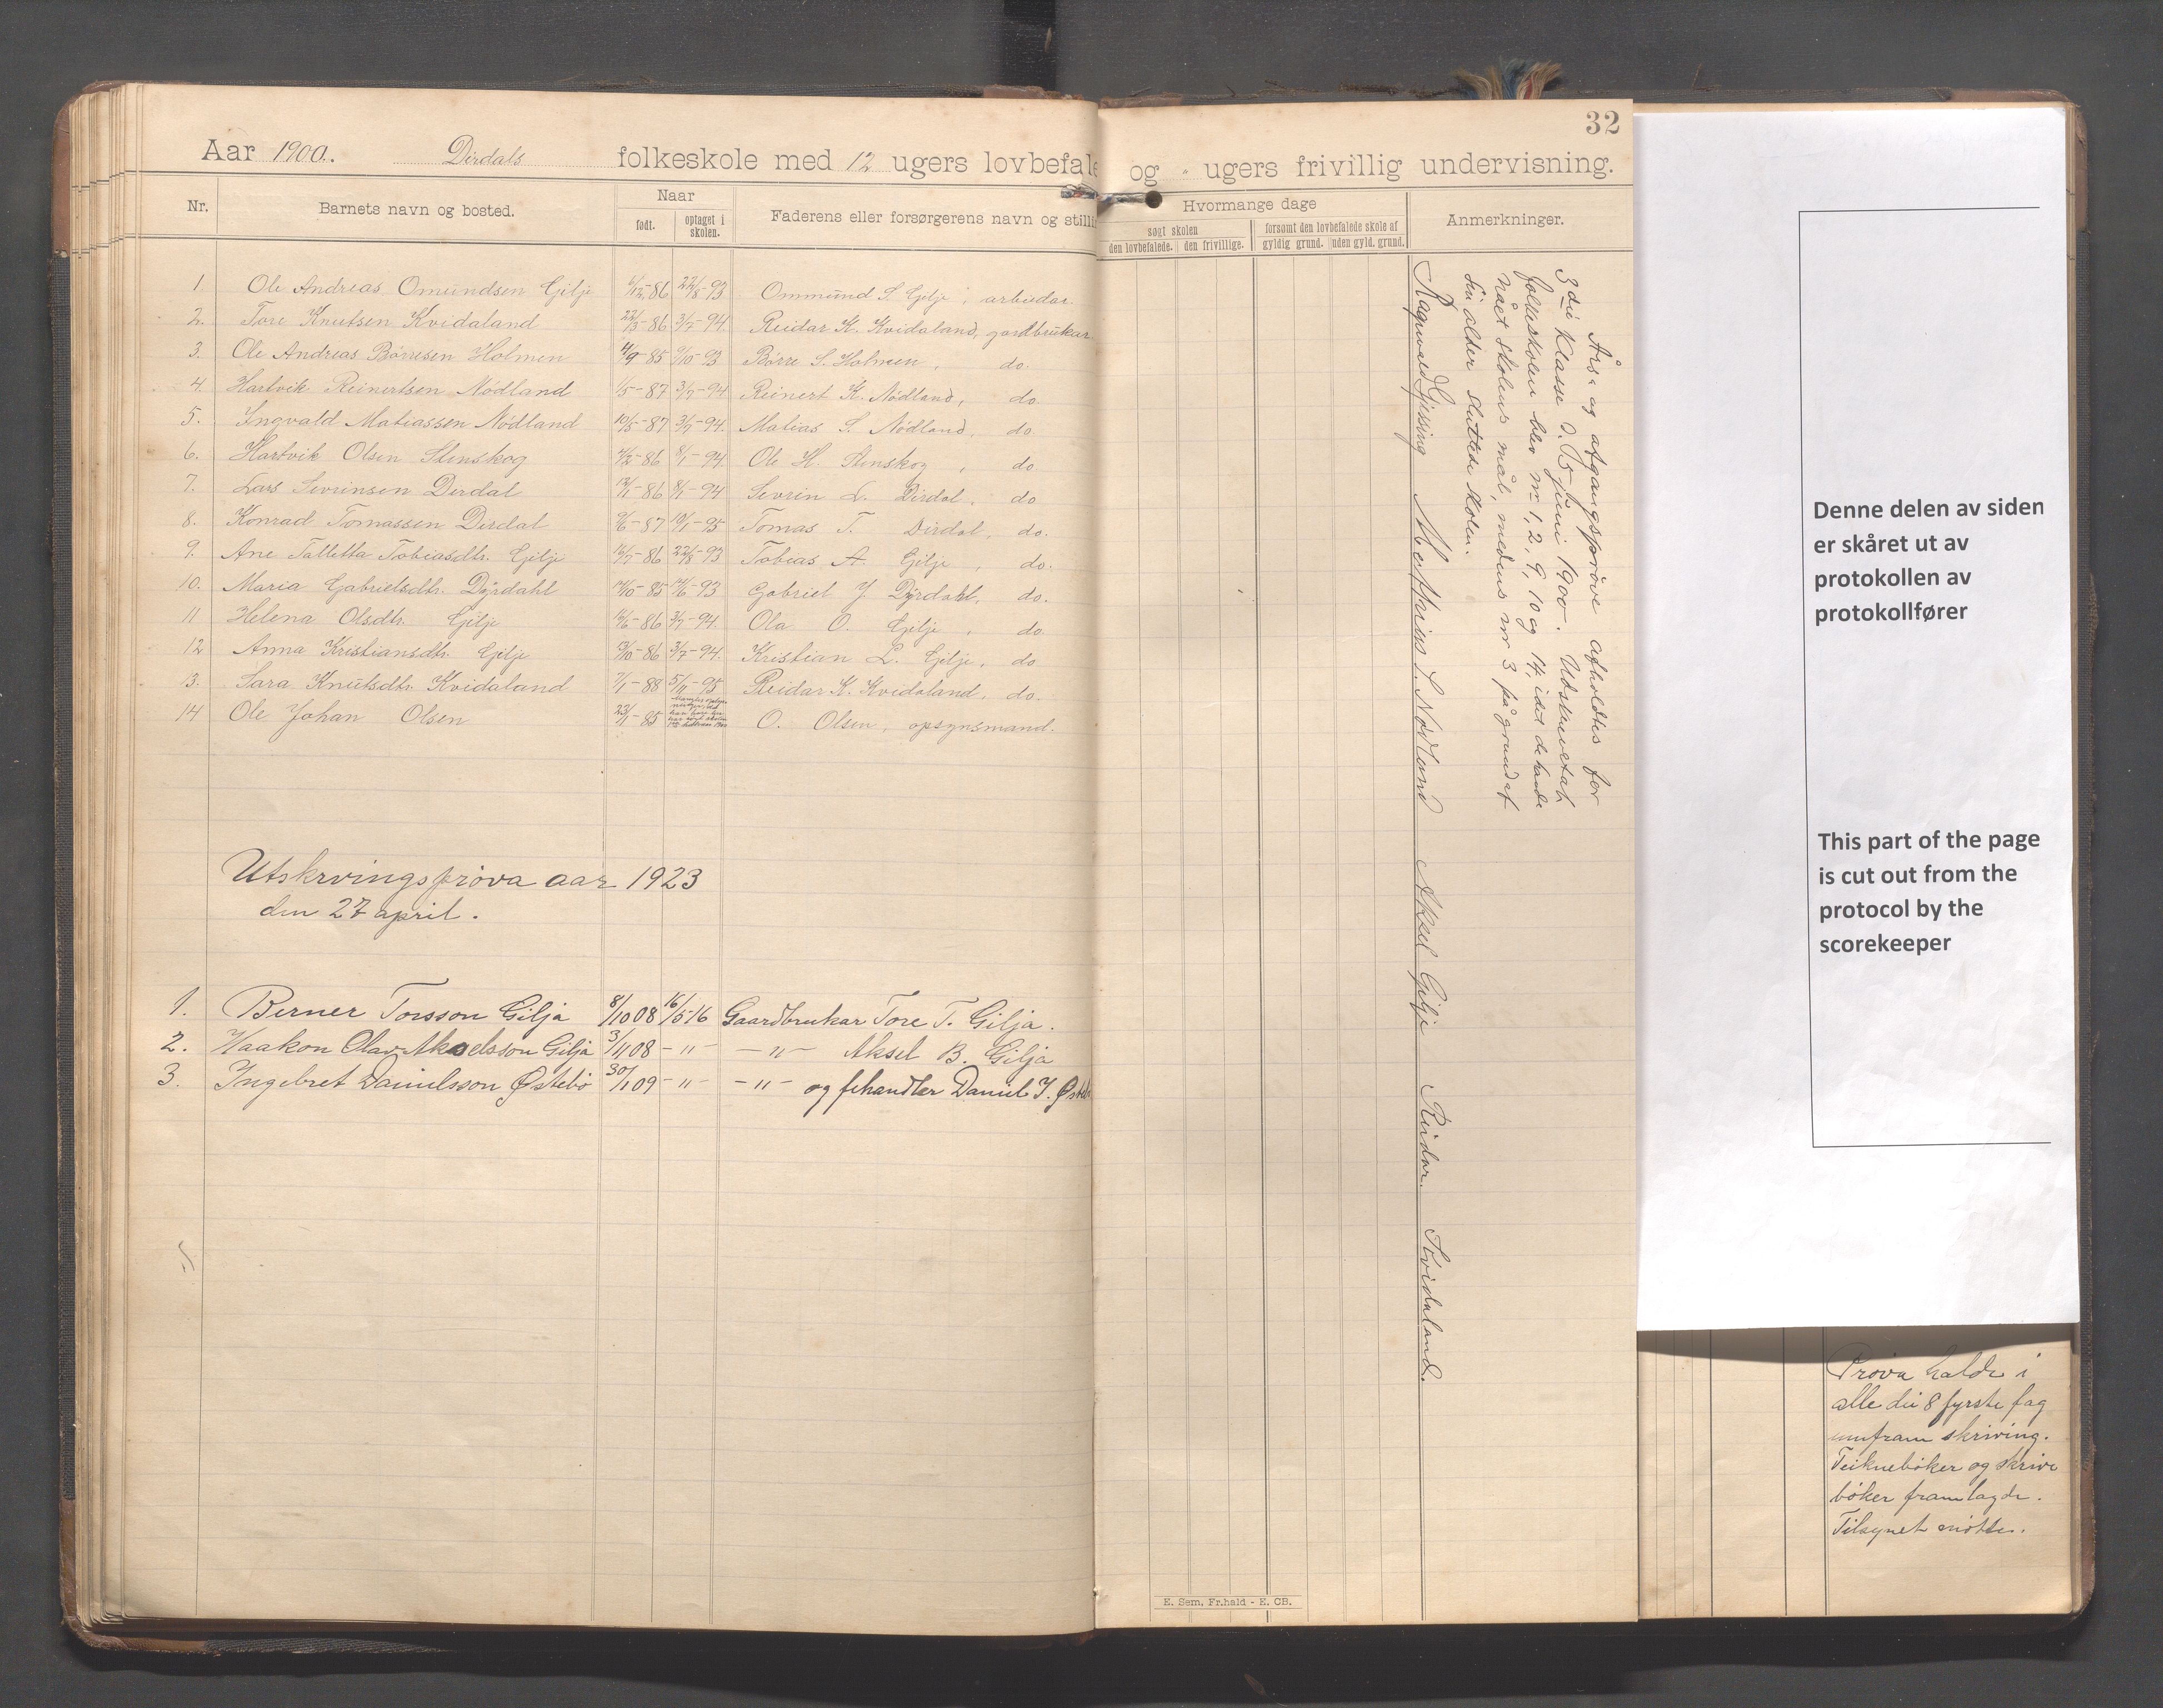 Aar 1900. Dirdals folkeskole med 12 ugers lovbefale
Nr. Barnets navn og bosted. Naar Faderens eller forsørgerens navn og stilli
født. optaget i skolen.
1 Ole Andreas Omundsen Gilje 6/12-86 22/8-93 Ommund S. Gilje, arbeidar.
2. Tore Knutsen Kvidaland 22/3-86 3/7-94 Reidar K. Kvidaland, gardbrukar
3. Ole Andreas Børresen Holmen 4/9-85 9/10-93 Børre S. Holmen, do.
4. Hartvik Reinertsen Nödland 1/5-87 3/7-94 Reinert K. Nödland, do.
5. Ingvald Matiassen Nödland 10/5-87 3/7-94. Matias S. Nödland, do.
6. Hartvik Olsen Stenskog 4/2-86 8/1-94. Ole H. Stenskog, do
7. Lars Sevrinsen Dirdal 13/1-86 8/1-94 Sevrin L. Dirdal, do
8. Konrad Tomassen Dirdal 9/6-87 10/1-95 Tomas T. Dirdal, do.
9. Ane Talletta Tobiasdtr. Gilje 12/7-86 22/8-93 Tobias A. Gilje, do.
10. Maria Gabrielsdtr. Dÿrdahl 14/10-85 14/6-93 Gabriel J. Dÿrdahl, do.
11 Helena Olsdtr. Gilje 14/6-86 3/7-94. Ola O. Gilje, do
12 Anna Kristiansdtr. Gilje 13/10-86 3/7-94. Kristian L. Gilje, do
13. Sara Knutsdtr. Kvidaland 7/1-88 5/11-95 Reidar K. Kvidaland, do.
14 Ole Johan Olsen 23/1-85 O. Olsen, opsynsmand.
Utskrvingsprøva aar 1923
den 27 april.
1. Berner Torsson Gilja 8/10 08 16/5 16 Gaardbrukar Tore T. Gilja.
2. Haakon Olav Akselsson Gilja 3/11 08 - " - - " - Aksel B. Gilja
3. Ingebret Danielsson Østebø 30/1 09 - " - - " - og fehandler Daniel I. Østeb
32
og " ugers frivillig undervisning.
Hvormange dage Anmerkninger.
søgt skolen forsømt den lovbefalede skole af
den lovbefalede. den frivillige. gyldig grund. uden gyld. grund.
Års- og afgangsprøve afholdtes for
3die klasse d. 15 juni 1900. Udskrevet af
folkeskolen blev nr 1, 2, 9, 10 og 14, idet de havde
nået skolens mål, medens nr 3 på grund af
sin alder sluttede skolen.
Ragnvald Gjessing Matthias S. Nødland Aksel Gilje Reidar Kvidaland.
E. Sem, Fr.hald - E. CB.
Denne delen av siden
er skåret ut av
protokollen av
protokollfører
This part of the page
is cut out from the
protocol by the
scorekeeper
Prøva halde i
alle dei 8 fyrste fag
umfram skriving.
Teiknebøker og skrive
bøker framlagde.
Tilsynet møtte.